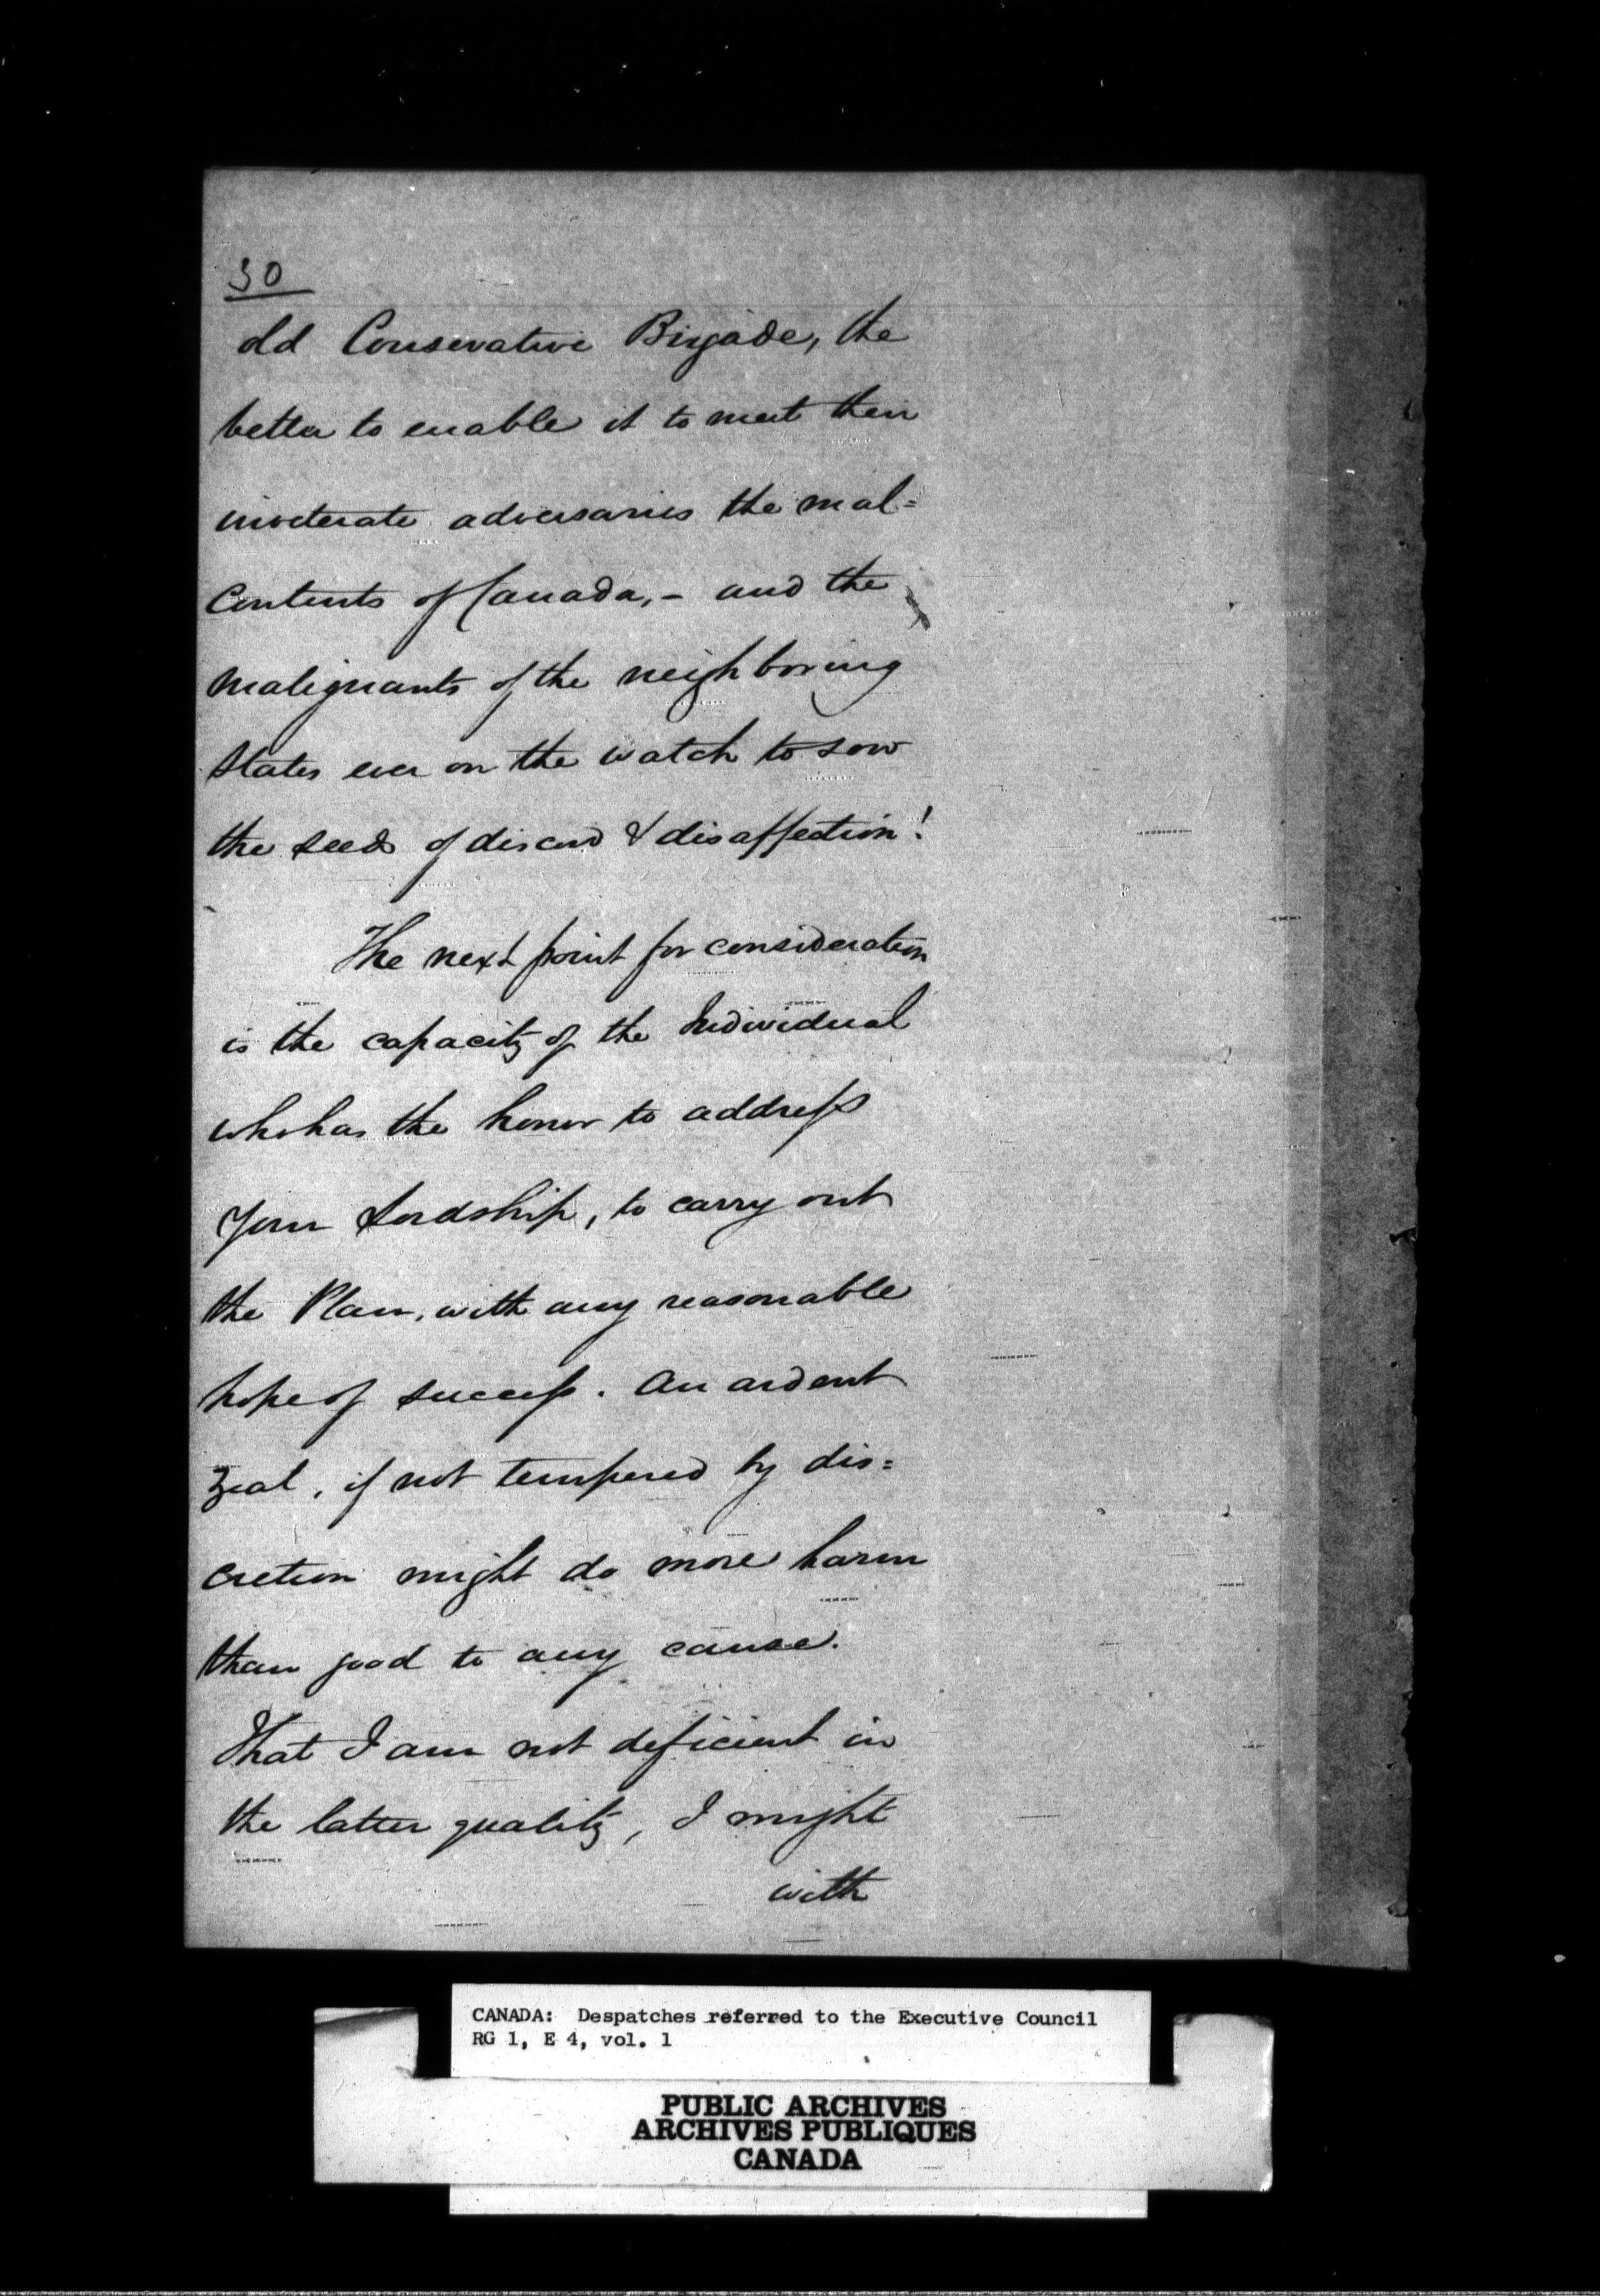 30
old Conservative Brigade, the
better to enable it to meet their
inveterate adversaries the mal=
contents of Canada,- and the
malignants of the neighboring
States ever on the watch to sow
the seeds of discord & disaffection!
The next point for consideration
is the capacity of the Individual
who has the honor to address
Your Lordship, to carry out
the Plan, with any reasonable
hope of success. An ardent
zeal, if not tempered by dis=
cretion might do more harm
than good to any cause.
That I am not deficient in
the latter quality, I might
with
CANADA: Despatches referred to the Executive Council
RG 1, E 4, vol. 1
PUBLIC ARCHIVES
ARCHIVES PUBLIQUES
CANADA